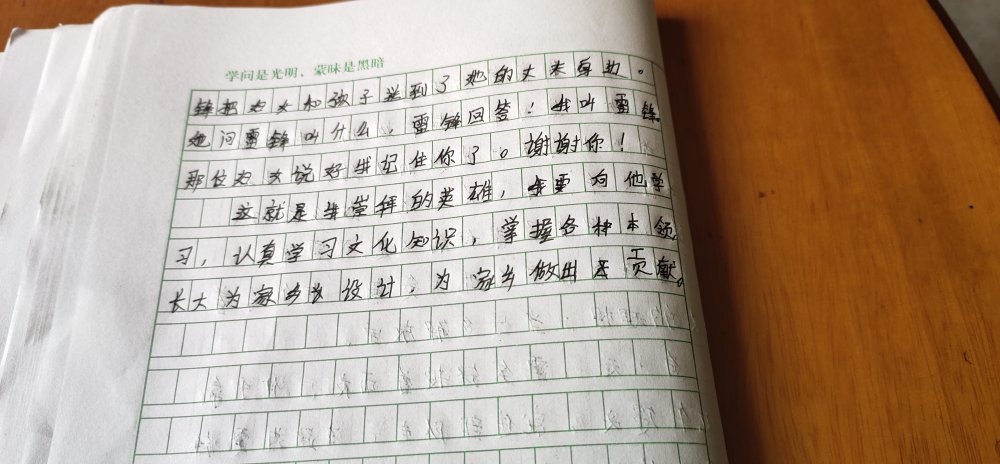 学问是光明、蒙昧是黑暗
锋把妇女和孩子送到了她的丈夫身边。
她问雷锋叫什么,雷锋回答!我叫雷锋。
那位妇女说好我记住你了。谢谢你!
这就是我崇拜的英雄,我要向他学
习,认真学习文化知识,掌握各种本领,
长大为家乡设计,为家乡做出贡献。